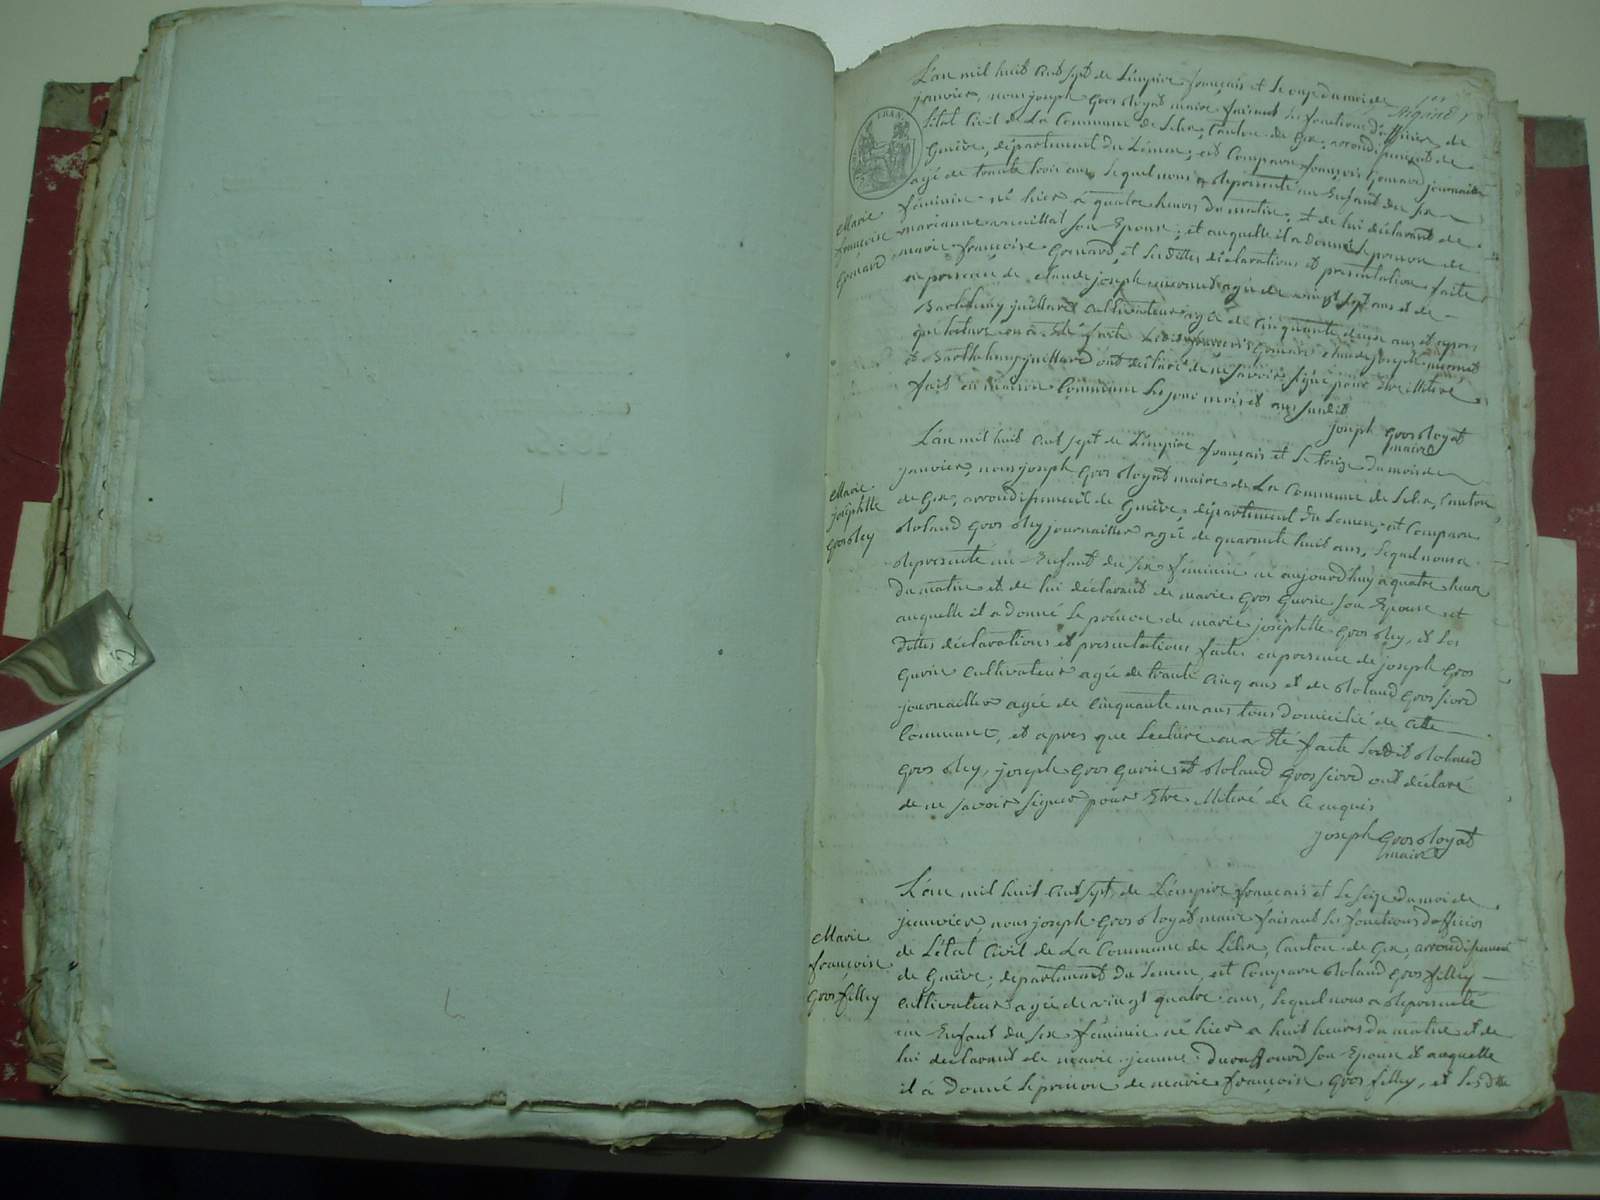 L'an mil huit cent sept de L'empire français et le onze du moi de
janvier, nous joseph Gros Royat maire faisant les fonctions d'officier de
L'état Civil de La Commune de Lelex, Canton de Gex, arrondissement de
Genève, département du Léman, est Comparu françois Gomard journalier
agé de trante trois ans, lequel nous a représenté un Enfant du sex
féminin né hier à quatre heures du matin, et de lui déclarant de
marianne son Epouse, et auquelle il a donné le prenom de
marie françoise Gomard, et les dittes déclarations et présentation faite
en présence de claude joseph agé de vingt sept ans et de
Barthelemy juillard Cultivateur agé de Cinquante deux ans et après
que lecture en a été faite Ledit françois Gomard claude joseph
et Barthelemy juillard ont déclaré de ne savoir signé pour être illitéré
fait en maison Commune les jour mois et an susdit
joseph Gros Royat
maire
Marie
françoise
Gomard
L'an mil huit cent sept de L'empire français et le treize du mois de
janvier, nous joseph Gros Royat maire de La Commune de Lelex, Canton
de Gex, arrondissement de Genève, département du Léman, est Comparu
Roland Gros Rey journaillier agé de quarante huit ans, lequel nous a
représenté un Enfant du sex féminin né aujourd'huy à quatre heure
du matin et de lui déclarant de marie Gros Gurin son Epouse et
auquelle il a donné le prénom de marie josephtte Gros Rey, et les
dittes déclarations et présentations faites en présence de joseph Gros
Gurin Cultivateur agé de trante Cinq ans et de Roland Gros
journaillier agé de Cinquante un ans tous domicilié de Cette
Commune, et après que Lecture en a été faite Lesdit Roland
Gros Rey, joseph Gros Gurin et Roland Gros ont déclaré
de ne savoir signer pour Etre illitéré de Ce enquis
joseph Gros Royat
maire
Marie
josephtte
Gros Rey
L'an mil huit cent sept de L'empire français et le seize du moi de
janvier, nous joseph Gros Royat maire faisant les fonctions d'officier
de L'état Civil de La Commune de Lelex, Canton de Gex, arrondissement
de Genève, département du Léman, est Comparu Roland Gros filley
Cultivateur agé de vingt quatre ans, lequel nous a représenté
un Enfant du sex féminin né hier à huit heures du matin et de
lui déclarant de marie jeanne son Epouse et auquelle
il a donné le prénom de marie françoise Gros filley, et les dtte
Marie
françoise
Gros filley